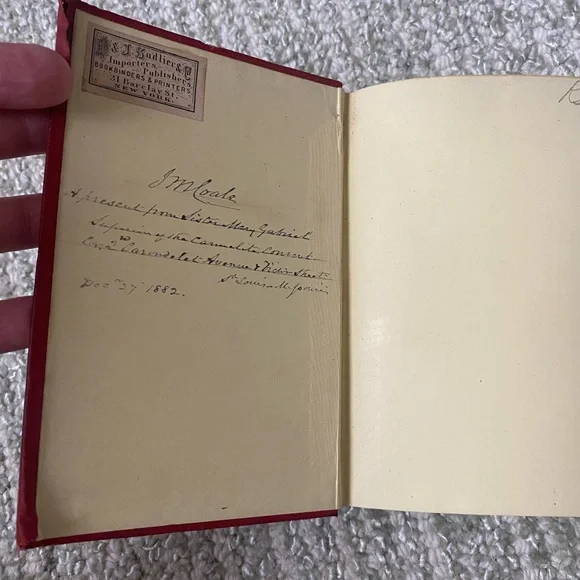 D & J Sadlier & Co
Importers
Publishers
BOOKBINDERS & PRINTERS
31 Barclay St.
NEW YORK.
J M Coale
A present from Sister Mary Gabriel
Superior of the Carmelite Convent
Carondelet Avenue & Victor Street
St Louis Missouri
Dec 27 1882.